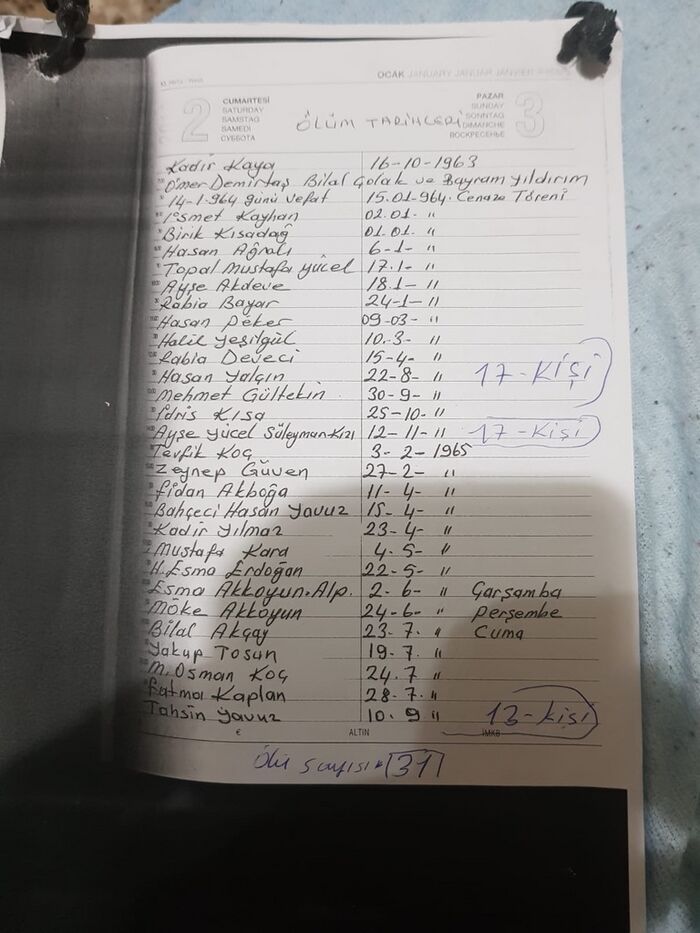 OCAK JANUARY JANUAR JANVIER
2 CUMARTESİ SATURDAY SAMSTAG SAMEDI СУББОТА
ÖLÜM TARİHLERİ
PAZAR SUNDAY SONNTAG DIMANCHE ВОСКРЕСЕНЬЕ 3
Kadir Kaya 16-10-1963
Ömer Demirtaş Bilal Çolak ve Bayram Yıldırım
14-1-964 günü Vefat 15.01-964. Cenaze Töreni
İsmet Kayhan 02.01- "
Birik Kısadağ 01.01. "
Hasan Ağralı 6-1- "
Topal Mustafa Yücel 17.1- "
Ayşe Akdeve 18.1- "
Rabia Bayar 24-1- "
Hasan Peker 09-03- "
Halil Yeşilgül 10.3- "
Rabia Deveci 15-4- "
Hasan Yalçın 22-8- " 17-KİŞİ
Mehmet Gültekin 30-9- "
İdris Kısa 25-10- "
Ayşe Yücel Süleyman Kızı 12-11- " 17-Kişi
Tevfik Koç 3-2-1965
Zeynep Güven 27-2- "
Fidan Akboğa 11-4- "
Bahçeci Hasan Yavuz 15-4- "
Kadir Yılmaz 23-4- "
Mustafa Kara 4-5- "
H. Esma Erdoğan 22-5- "
Esma Akkoyun.Alp. 2-6- " Çarşamba
Möke Akkoyun 24-6- " Perşembe
Bilal Akçay 23-7. " Cuma
Yakup Tosun 19-7. "
M. Osman Koç 24.7 "
Fatma Kaplan 28-7- "
Tahsin Yavuz 10.9 " 13-kişi
€ ALTIN İMKB
Ölü sayısı 31